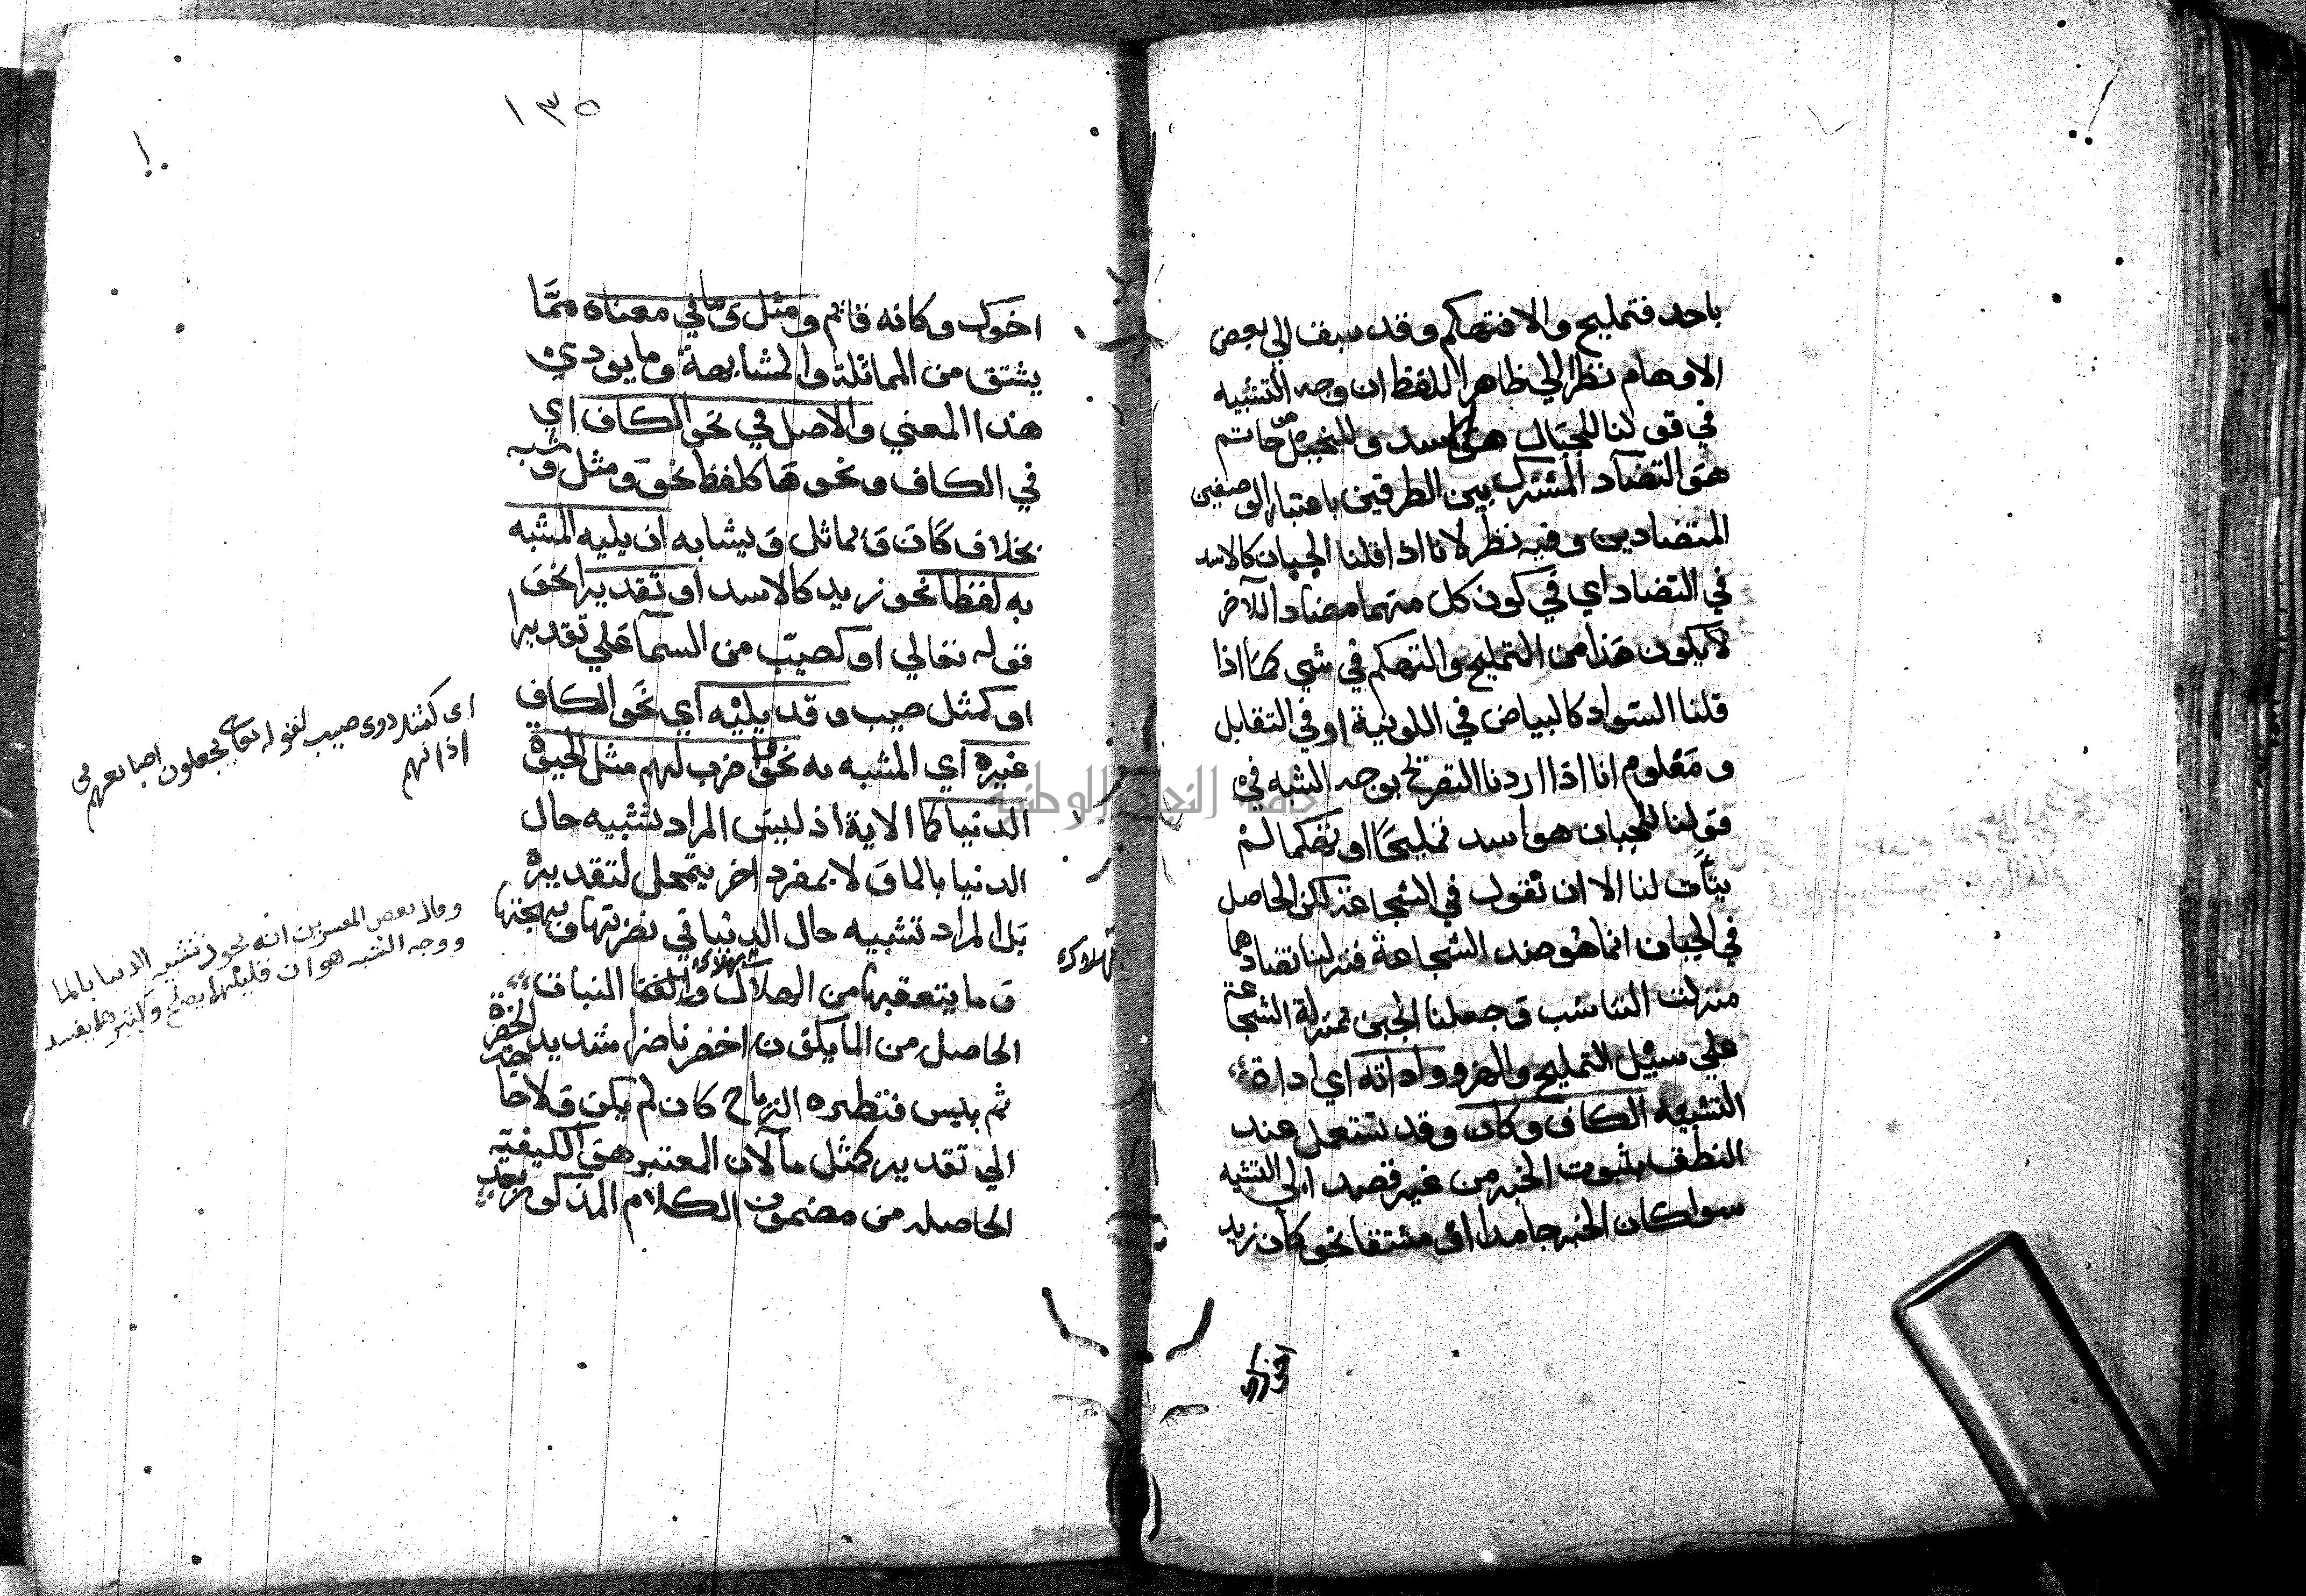 باحد فتمليح والا فتهكم وقد سبق الي بعض
الاوهام نظرا الي ظاهر اللفظ ان وجه التشبيه
في قولنا للجبان هو كاسد وللبخيل هو حاتم
هو التضاد المشترك بين الطرفين باعتبار الوصفين
المتضادين وفيه نظر لانا اذا قلنا الجبان كالاسد
في التضاد اي في كون كل منهما مضاد اللاخر
لا يكون هذا من التمليح والتهكم في شي كما اذا
قلنا السواد كالبياض في اللونية او في التقابل
ومعلوم انا اذا اردنا التصريح بوجه الشبه في
قولنا للجبان هو اسد تمليحا او تهكما لم
يتات لنا الا ان نقول في الشجاعة لكن الحاصل
في الجبان انما هو ضد الشجاعة فنزلنا تضادهما
منزلت التناسب وجعلنا الجبن بمنزلة الشجاعة
علي سبيل التمليح والهزو واداته اي اداة
التشبيه الكاف وكان وقد تستعمل عند
النطف بثبوت الخبر من غير قصد الي التشبيه
سوا كان الخبر جامدا او مشتقا نحو كان زيد
اخوك
١٣٥
اخوك وكانه قايم ومثل وما في معناه مما
يشتق من المماثلة والمشابهة وما يودي
هذا المعني والاصل في نحو الكاف اي
في الكاف ونحوها كلفظ نحو ومثل وشبه
بخلاف كان ويماثل ويشابه ان يليه المشبه
به لفظا نحو زيد كالاسد او تقديرا نحو
قوله تعالي او كصيب من السما علي تقدير
او كمثل صيب وقد يليه اي نحو الكاف
غيره اي المشبه به نحو واضرب لهم مثل الحيوة
الدنيا كما الاية اذ ليس المراد تشبيه حال
الدنيا بالما ولا بمفرد اخر يتمحل لتقديره
بل المراد تشبيه حال الدنيا في نضرتها وبهجتها
وما يتعقبها من الهلاك والفنا النبات
الحاصل من الما يكون اخضر ناضرا شديد الخضرة
ثم ييبس فتطيره الرياح كان لم يكن ولا حاجة
الي تقدير كمثل ما لان المعتبر هو الكيفية
الحاصله من مضمون الكلام المذكور بعد
اي كمثل ذوي صيب لقوله تعالى يجعلون اصابعهم في
اذانهم
وقال بعض المفسرين انه يجوز تشبيه الدنيا بالما
ووجه الشبه هو ان قليلهما يصلح وكثيرهما يفسد